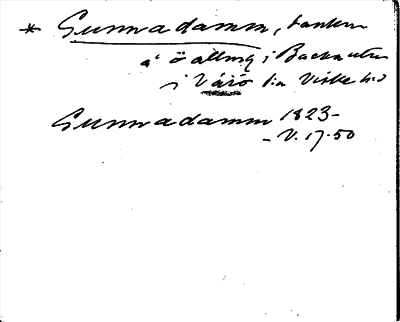 * Gunnadamm, banken
å ö allmg i Backa utm
i Värö s:n Viske h:d
Gunnadamm 1823-
- V. 17.50